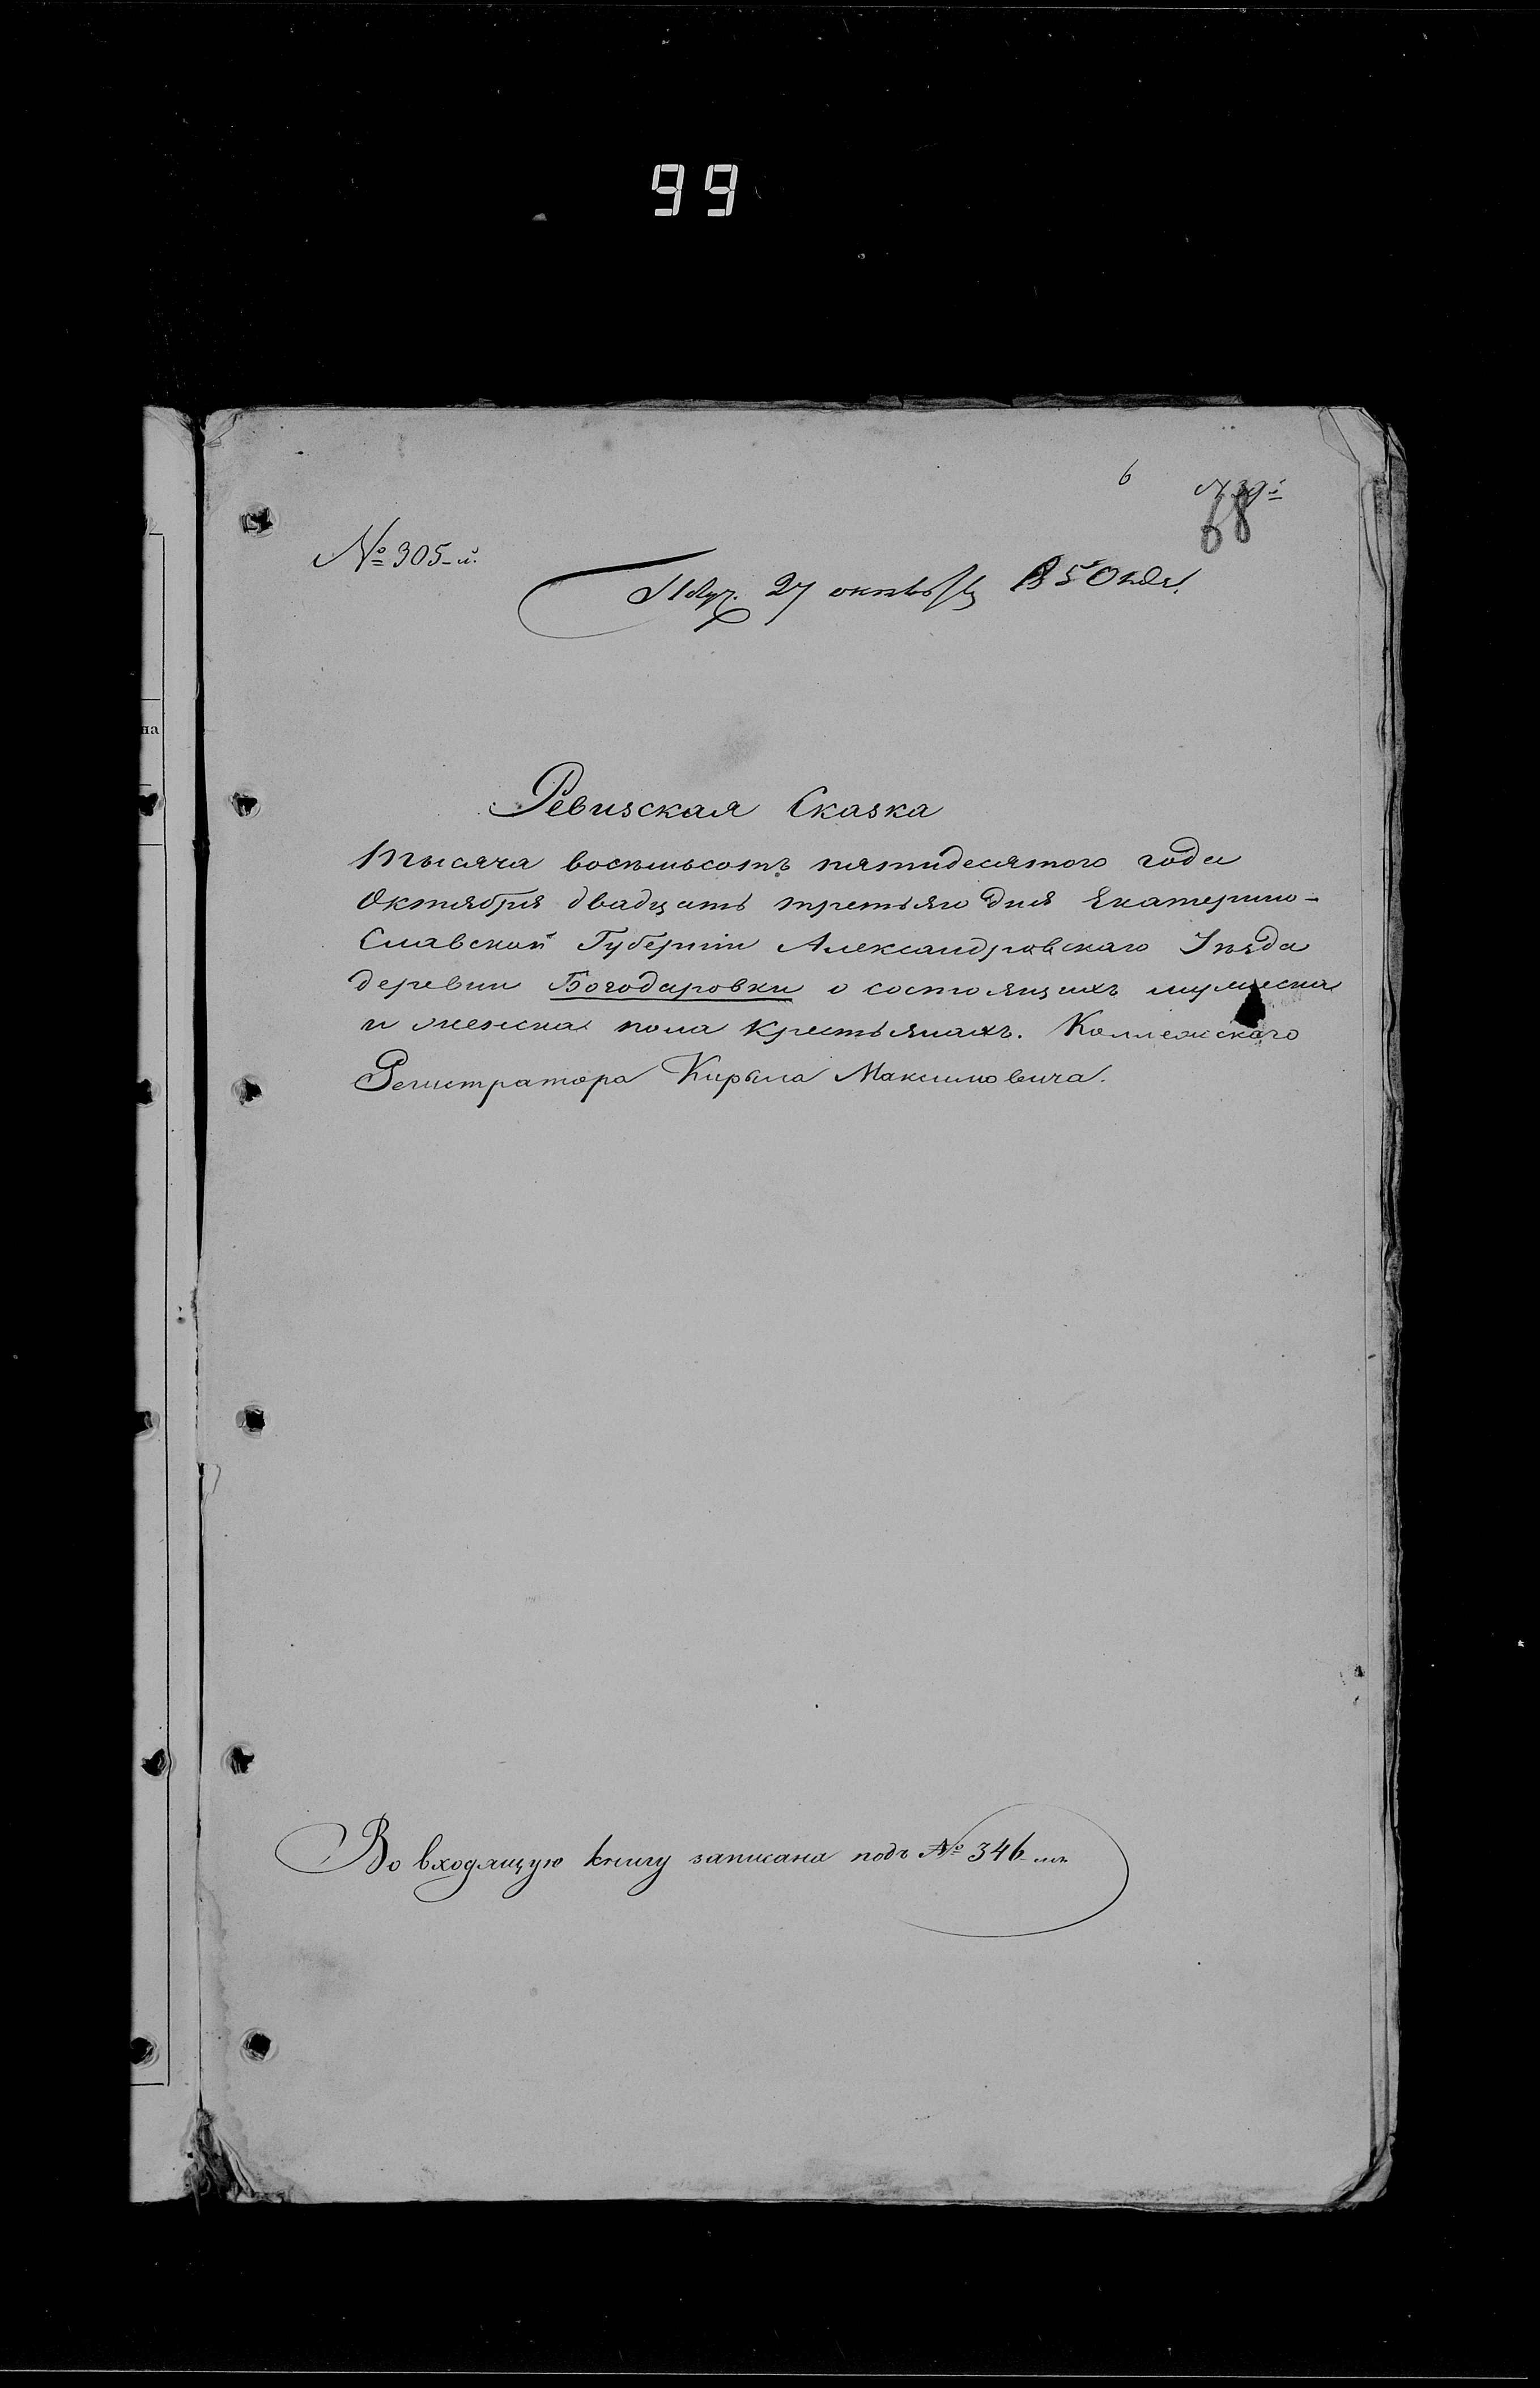 99
6
68
№ 305-й.
Получ. 27 октября 1850 года.
Ревизская Сказка
тысяча восемьсотъ пятидесятого года
Октября двадцать третьяго дня Екатерино-
Славской Губернiи Александровскаго Уѣзда
деревни Богодаровки о состоящихъ мужеска
и женска пола крестьянахъ. Коллежскаго
Регистратора Кирила Максимовича.
Во входящую книгу записана подъ № 346-мъ
на